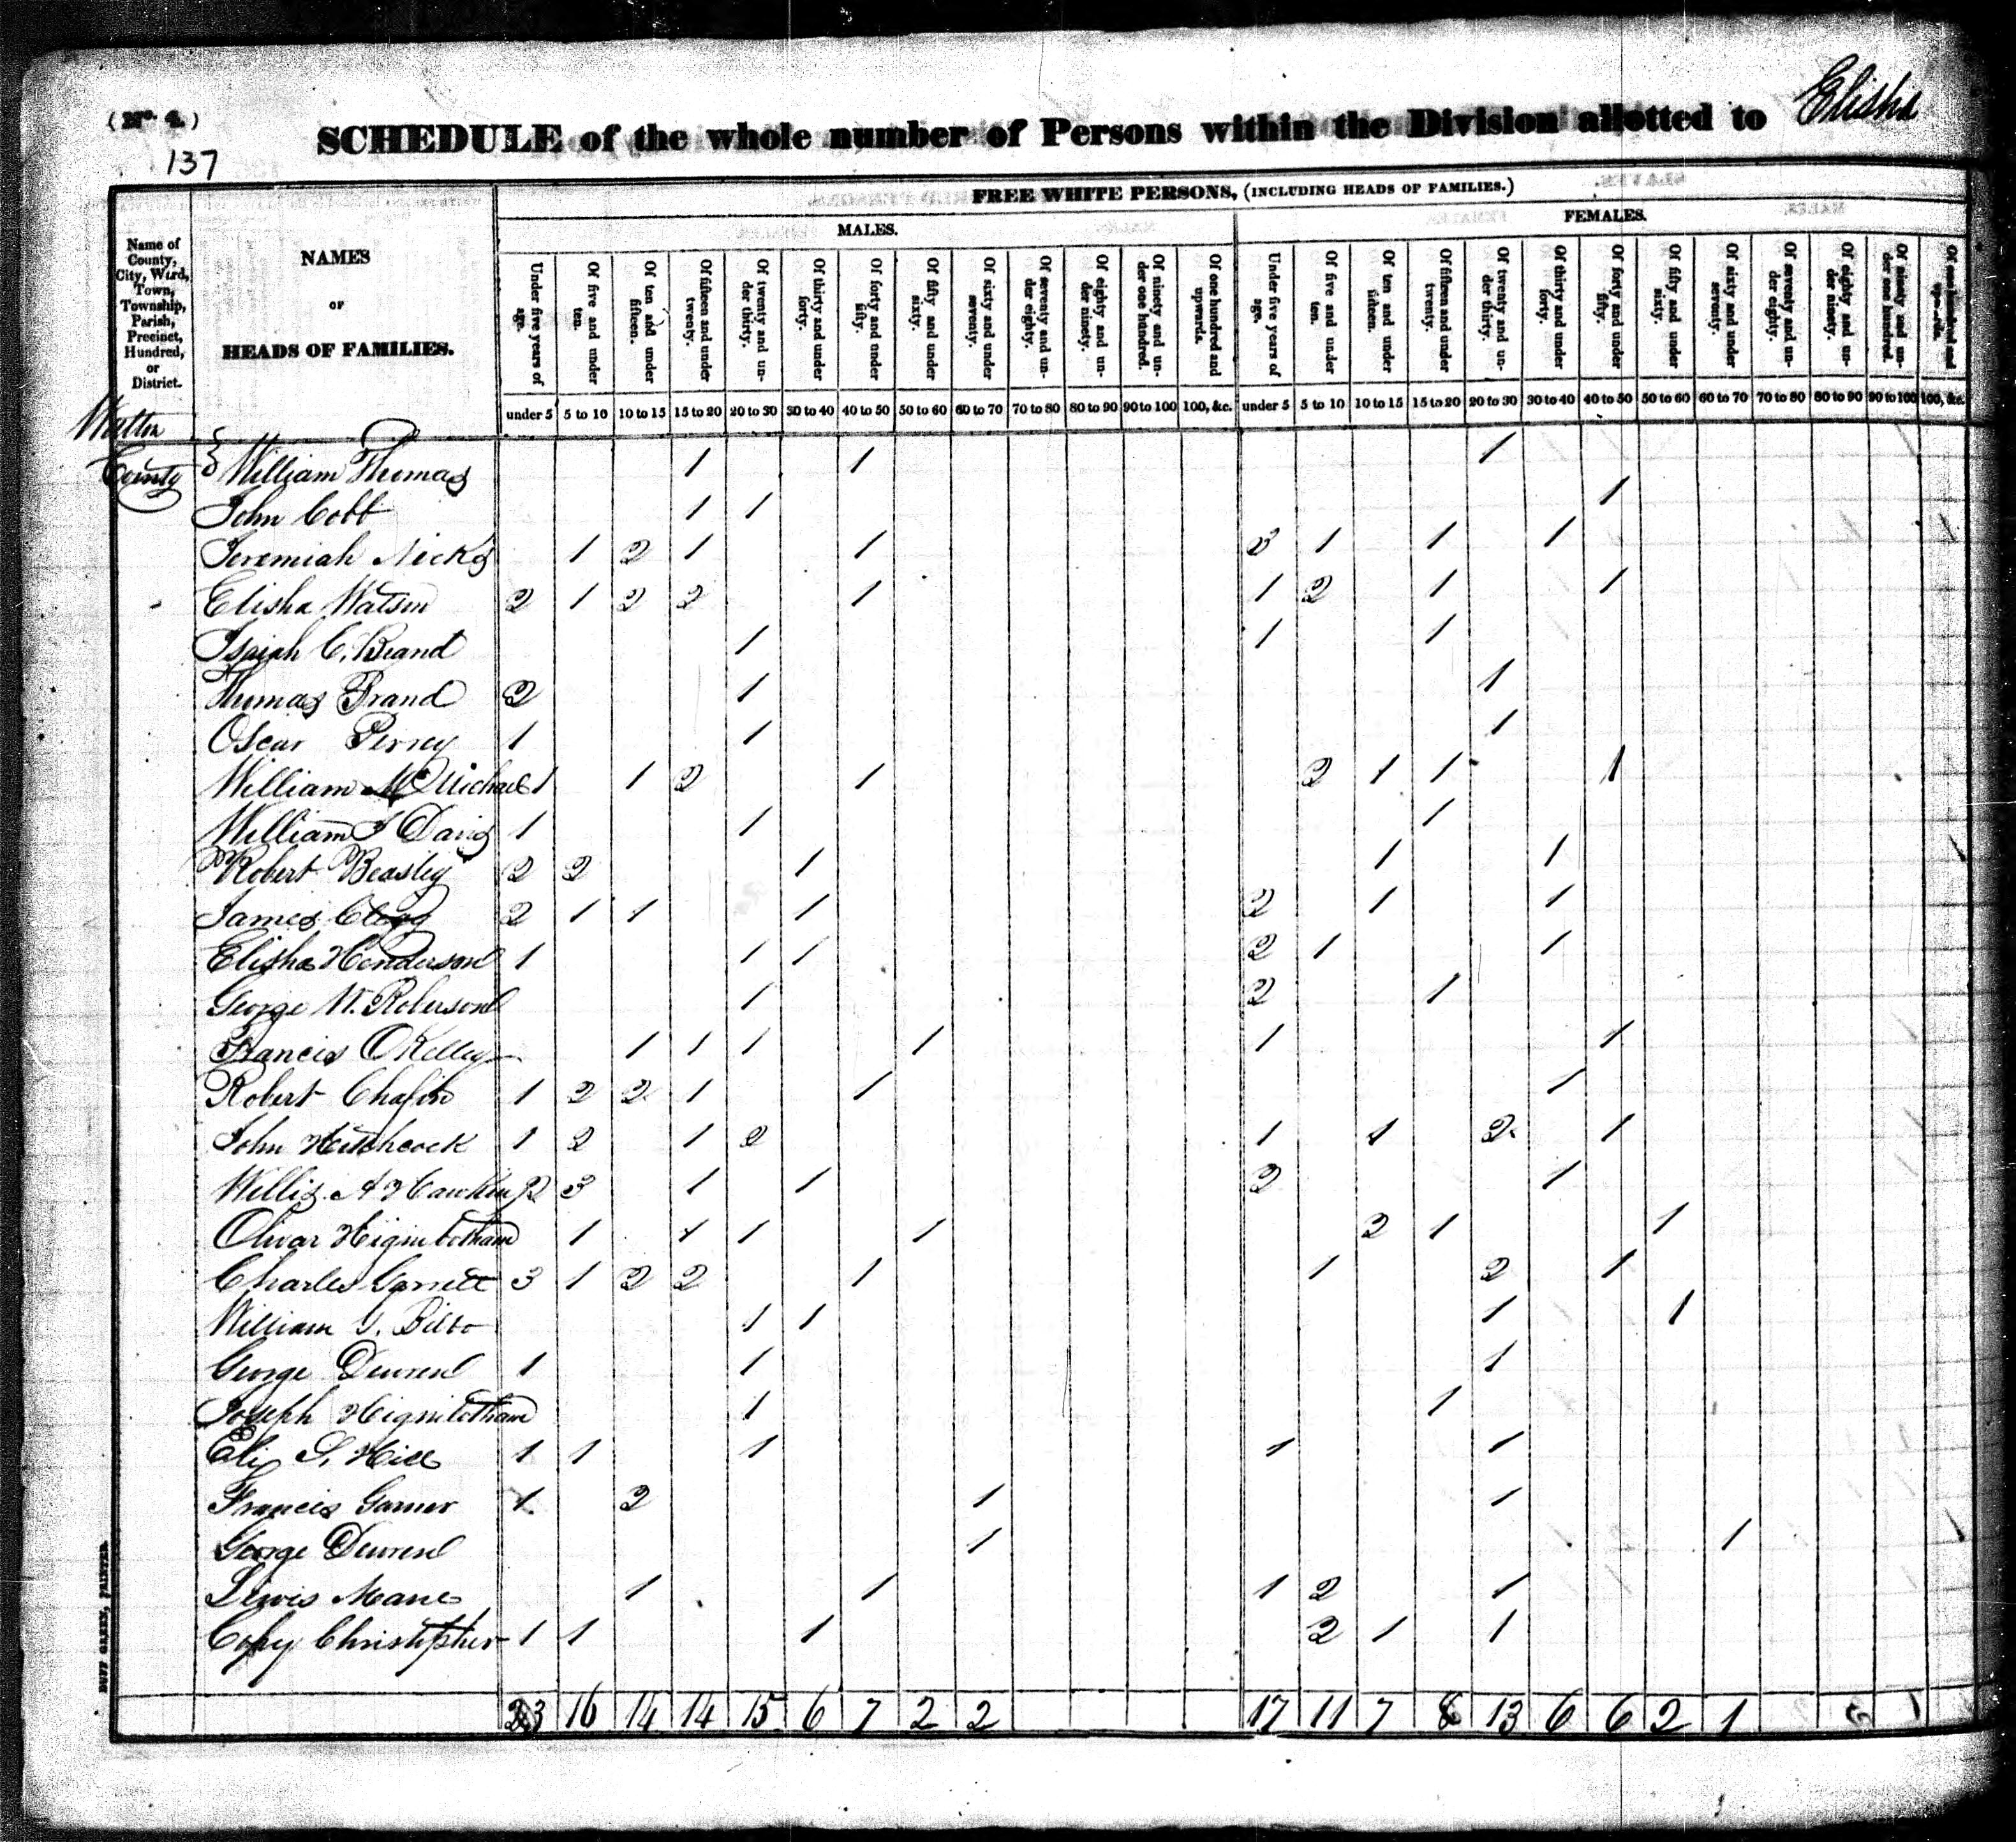 (No. 4.)
137
SCHEDULE of the whole number of Persons within the Division allotted to Elisha
FREE WHITE PERSONS, (INCLUDING HEADS OF FAMILIES.)
MALES. FEMALES.
Name of County, City, Ward, Town, Township, Parish, Precinct, Hundred, or District.
NAMES
OF
HEADS OF FAMILIES.
Under five years of age. Of five and under ten. Of ten and under fifteen. Of fifteen and under twenty. Of twenty and under thirty. Of thirty and under forty. Of forty and under fifty. Of fifty and under sixty. Of sixty and under seventy. Of seventy and under eighty. Of eighty and under ninety. Of ninety and under one hundred. Of one hundred and upwards. Under five years of age. Of five and under ten. Of ten and under fifteen. Of fifteen and under twenty. Of twenty and under thirty. Of thirty and under forty. Of forty and under fifty. Of fifty and under sixty. Of sixty and under seventy. Of seventy and under eighty. Of eighty and under ninety. Of ninety and under one hundred. Of one hundred and upwards.
under 5 5 to 10 10 to 15 15 to 20 20 to 30 30 to 40 40 to 50 50 to 60 60 to 70 70 to 80 80 to 90 90 to 100 100, &c. under 5 5 to 10 10 to 15 15 to 20 20 to 30 30 to 40 40 to 50 50 to 60 60 to 70 70 to 80 80 to 90 90 to 100 100, &c.
Walton
County William Thomas 1 1 1
John Cobb 1 1 1
Jeremiah Nicks 1 2 1 1 1 1 1
Elisha Watson 2 1 2 2 1 1 2 1 1
Isaiah C. Brand 1 1 1
Thomas Brand 2 1 1
Oscar Perrey 1 1 1
William McMichael 1 1 2 1 2 1 1 1
William Davis 1 1 1
Robert Beasley 2 2 1 1 1
James Clegg 2 1 1 1 2 1 1
Elisha Henderson 1 1 1 2 1 1
George W. Roberson 1 2 1
Francis OKelley 1 1 1 1 1 1
Robert Chafin 1 2 2 1 1 1
John Hitchcock 1 2 1 2 1 1 2 1
Willis A Hawkins 2 3 1 1 2 1
Olivar Higinbotham 1 1 1 1 2 1 1
Charles Garrett 3 1 2 2 1 1 2 1
William Bilbo 1 1 1 1
George Dewren 1 1 1
Joseph Higinbotham 1 1
Eli S. Hill 1 1 1 1 1
Francis Garner 1 2 1 1
George Dewren 1 1
Lewis 1 1 1 2 1
Christopher 1 1 1 2 1 1
23 16 14 14 15 6 7 2 2 17 11 7 8 13 6 6 2 1
DUFF GREEN, PRINTER.